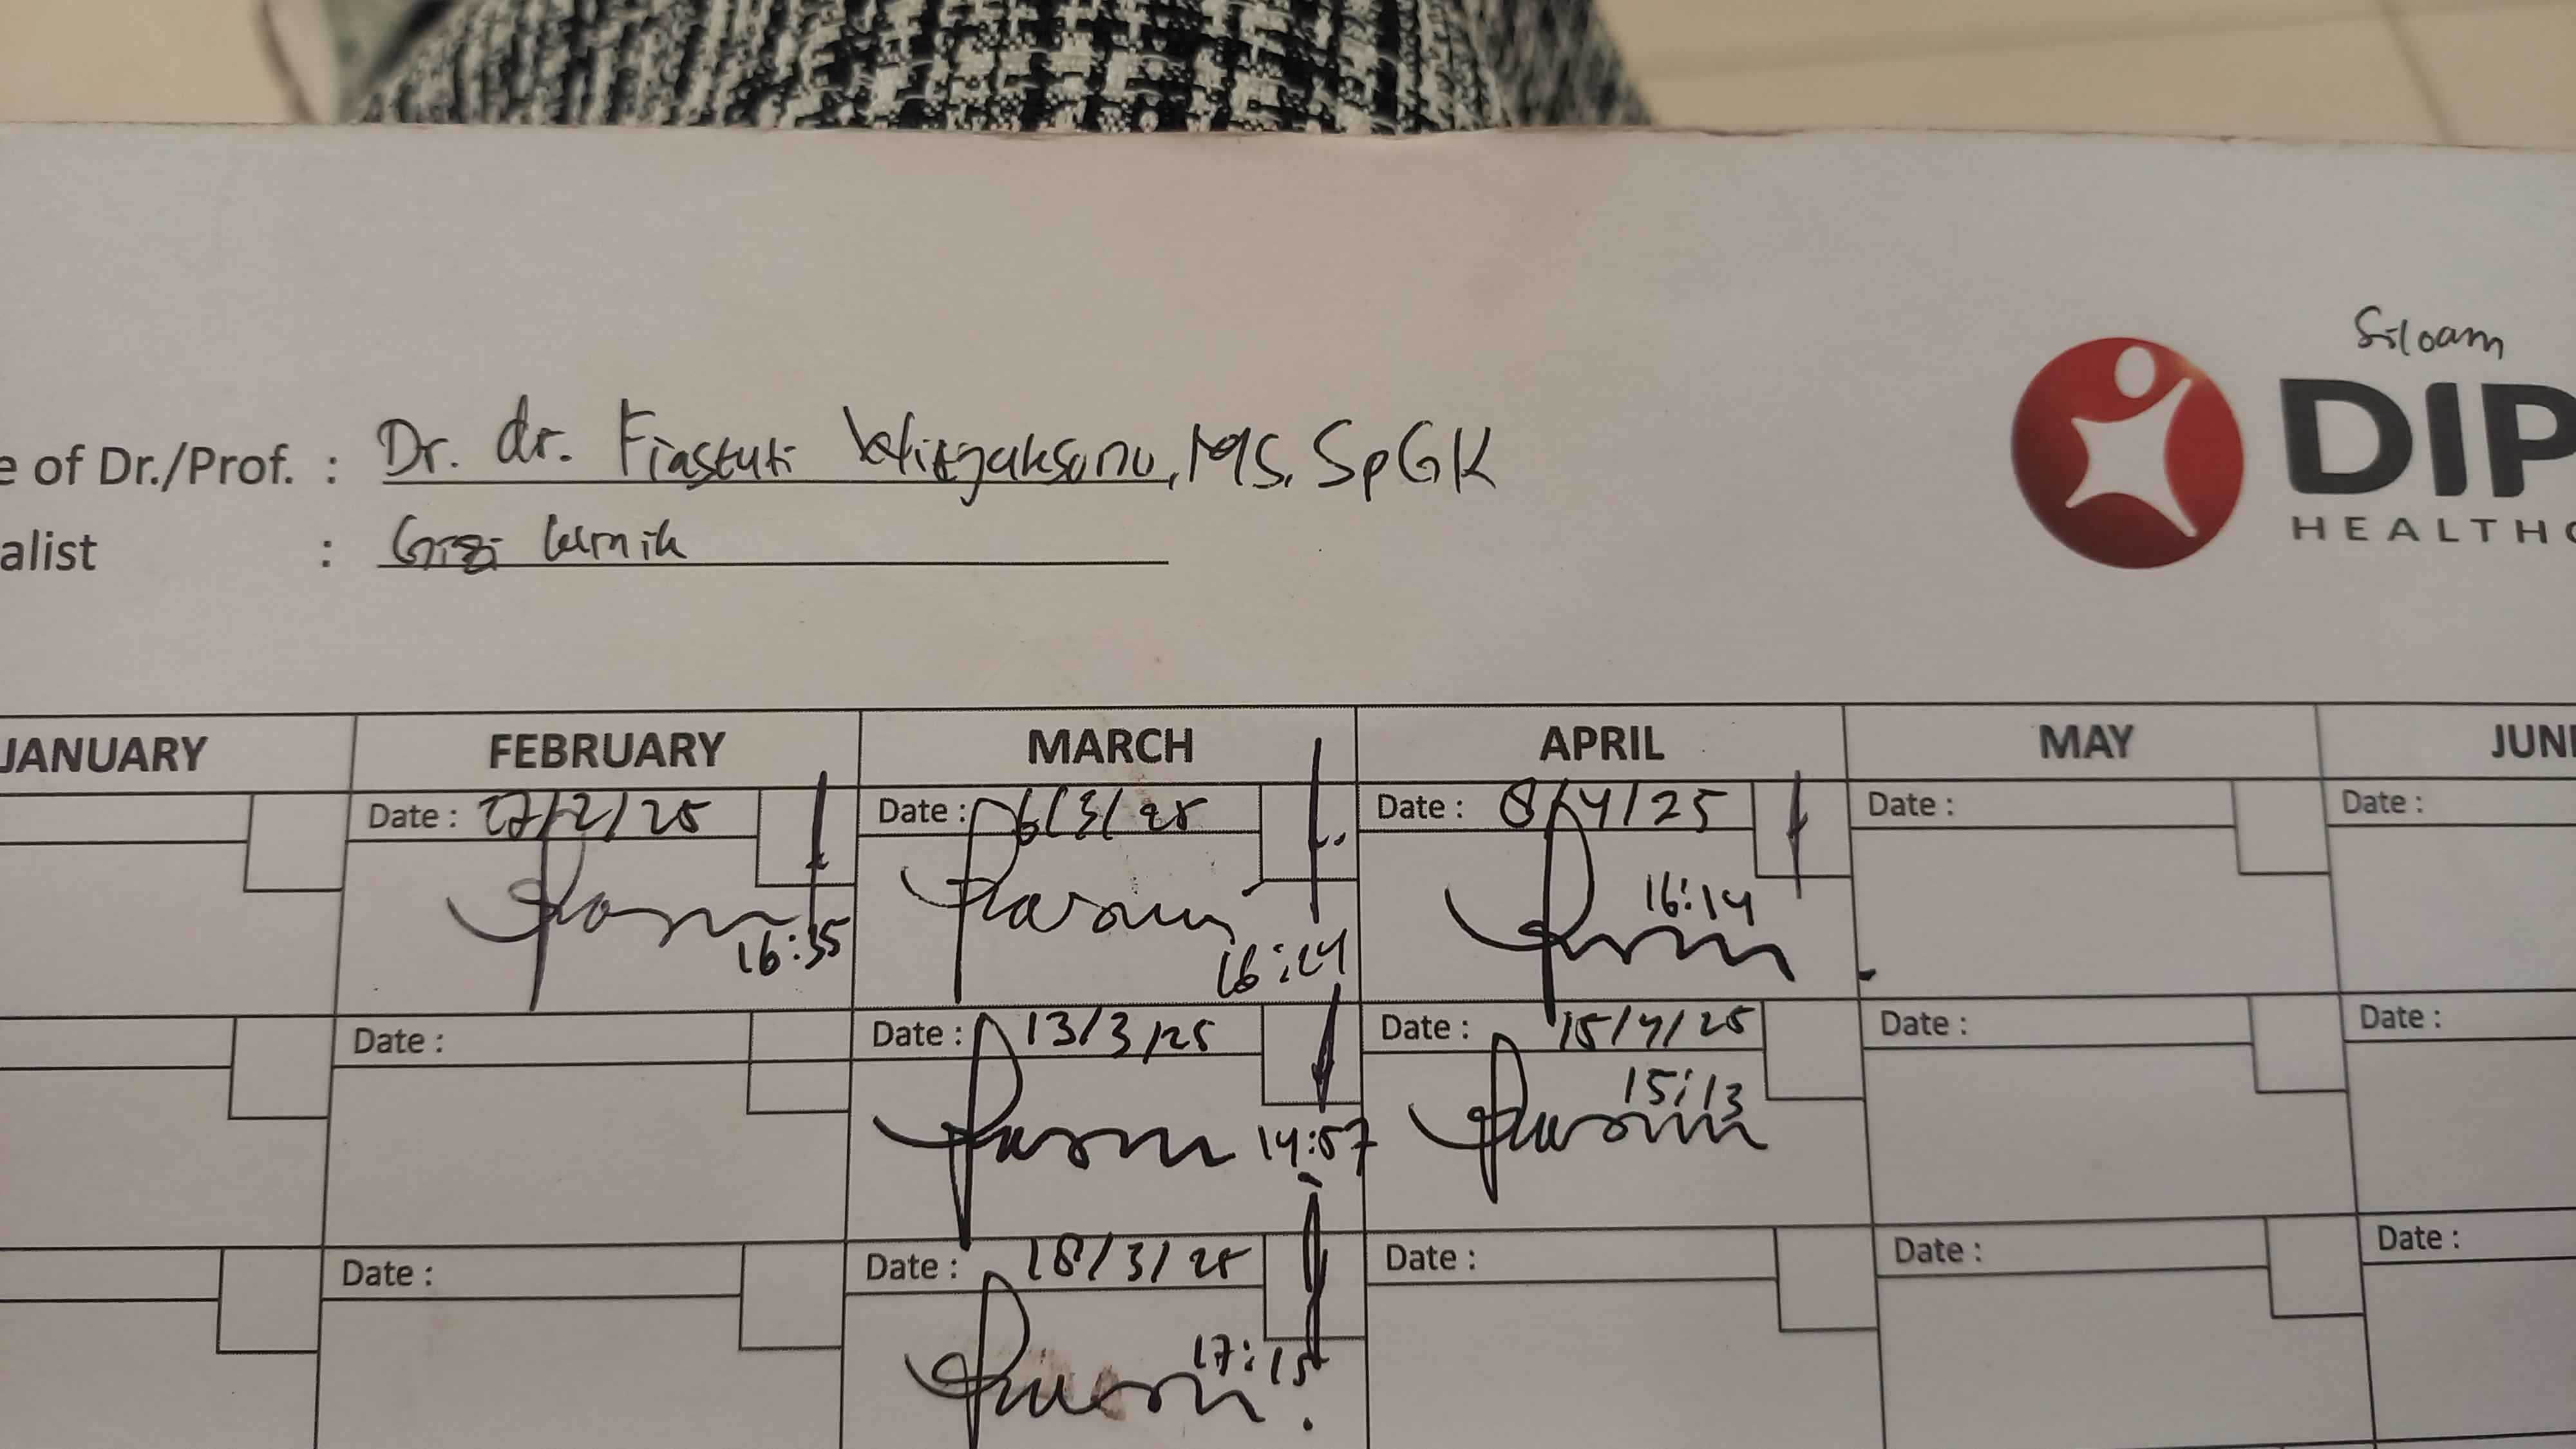 Siloam
DIP
HEALTHC
e of Dr./Prof. : Dr. dr. Fiastuti Witjaksono, MS, SpGK
alist : Gizi klinik
JANUARY FEBRUARY MARCH APRIL MAY JUN
Date : 27/2/25 Date : 6/3/25 Date : 8/4/25 Date : Date :
16:35 16:24 16:14
Date : Date : 13/3/25 Date : 15/4/25 Date : Date :
14:57 15:13
Date : Date : 18/3/25 Date : Date : Date :
17:15